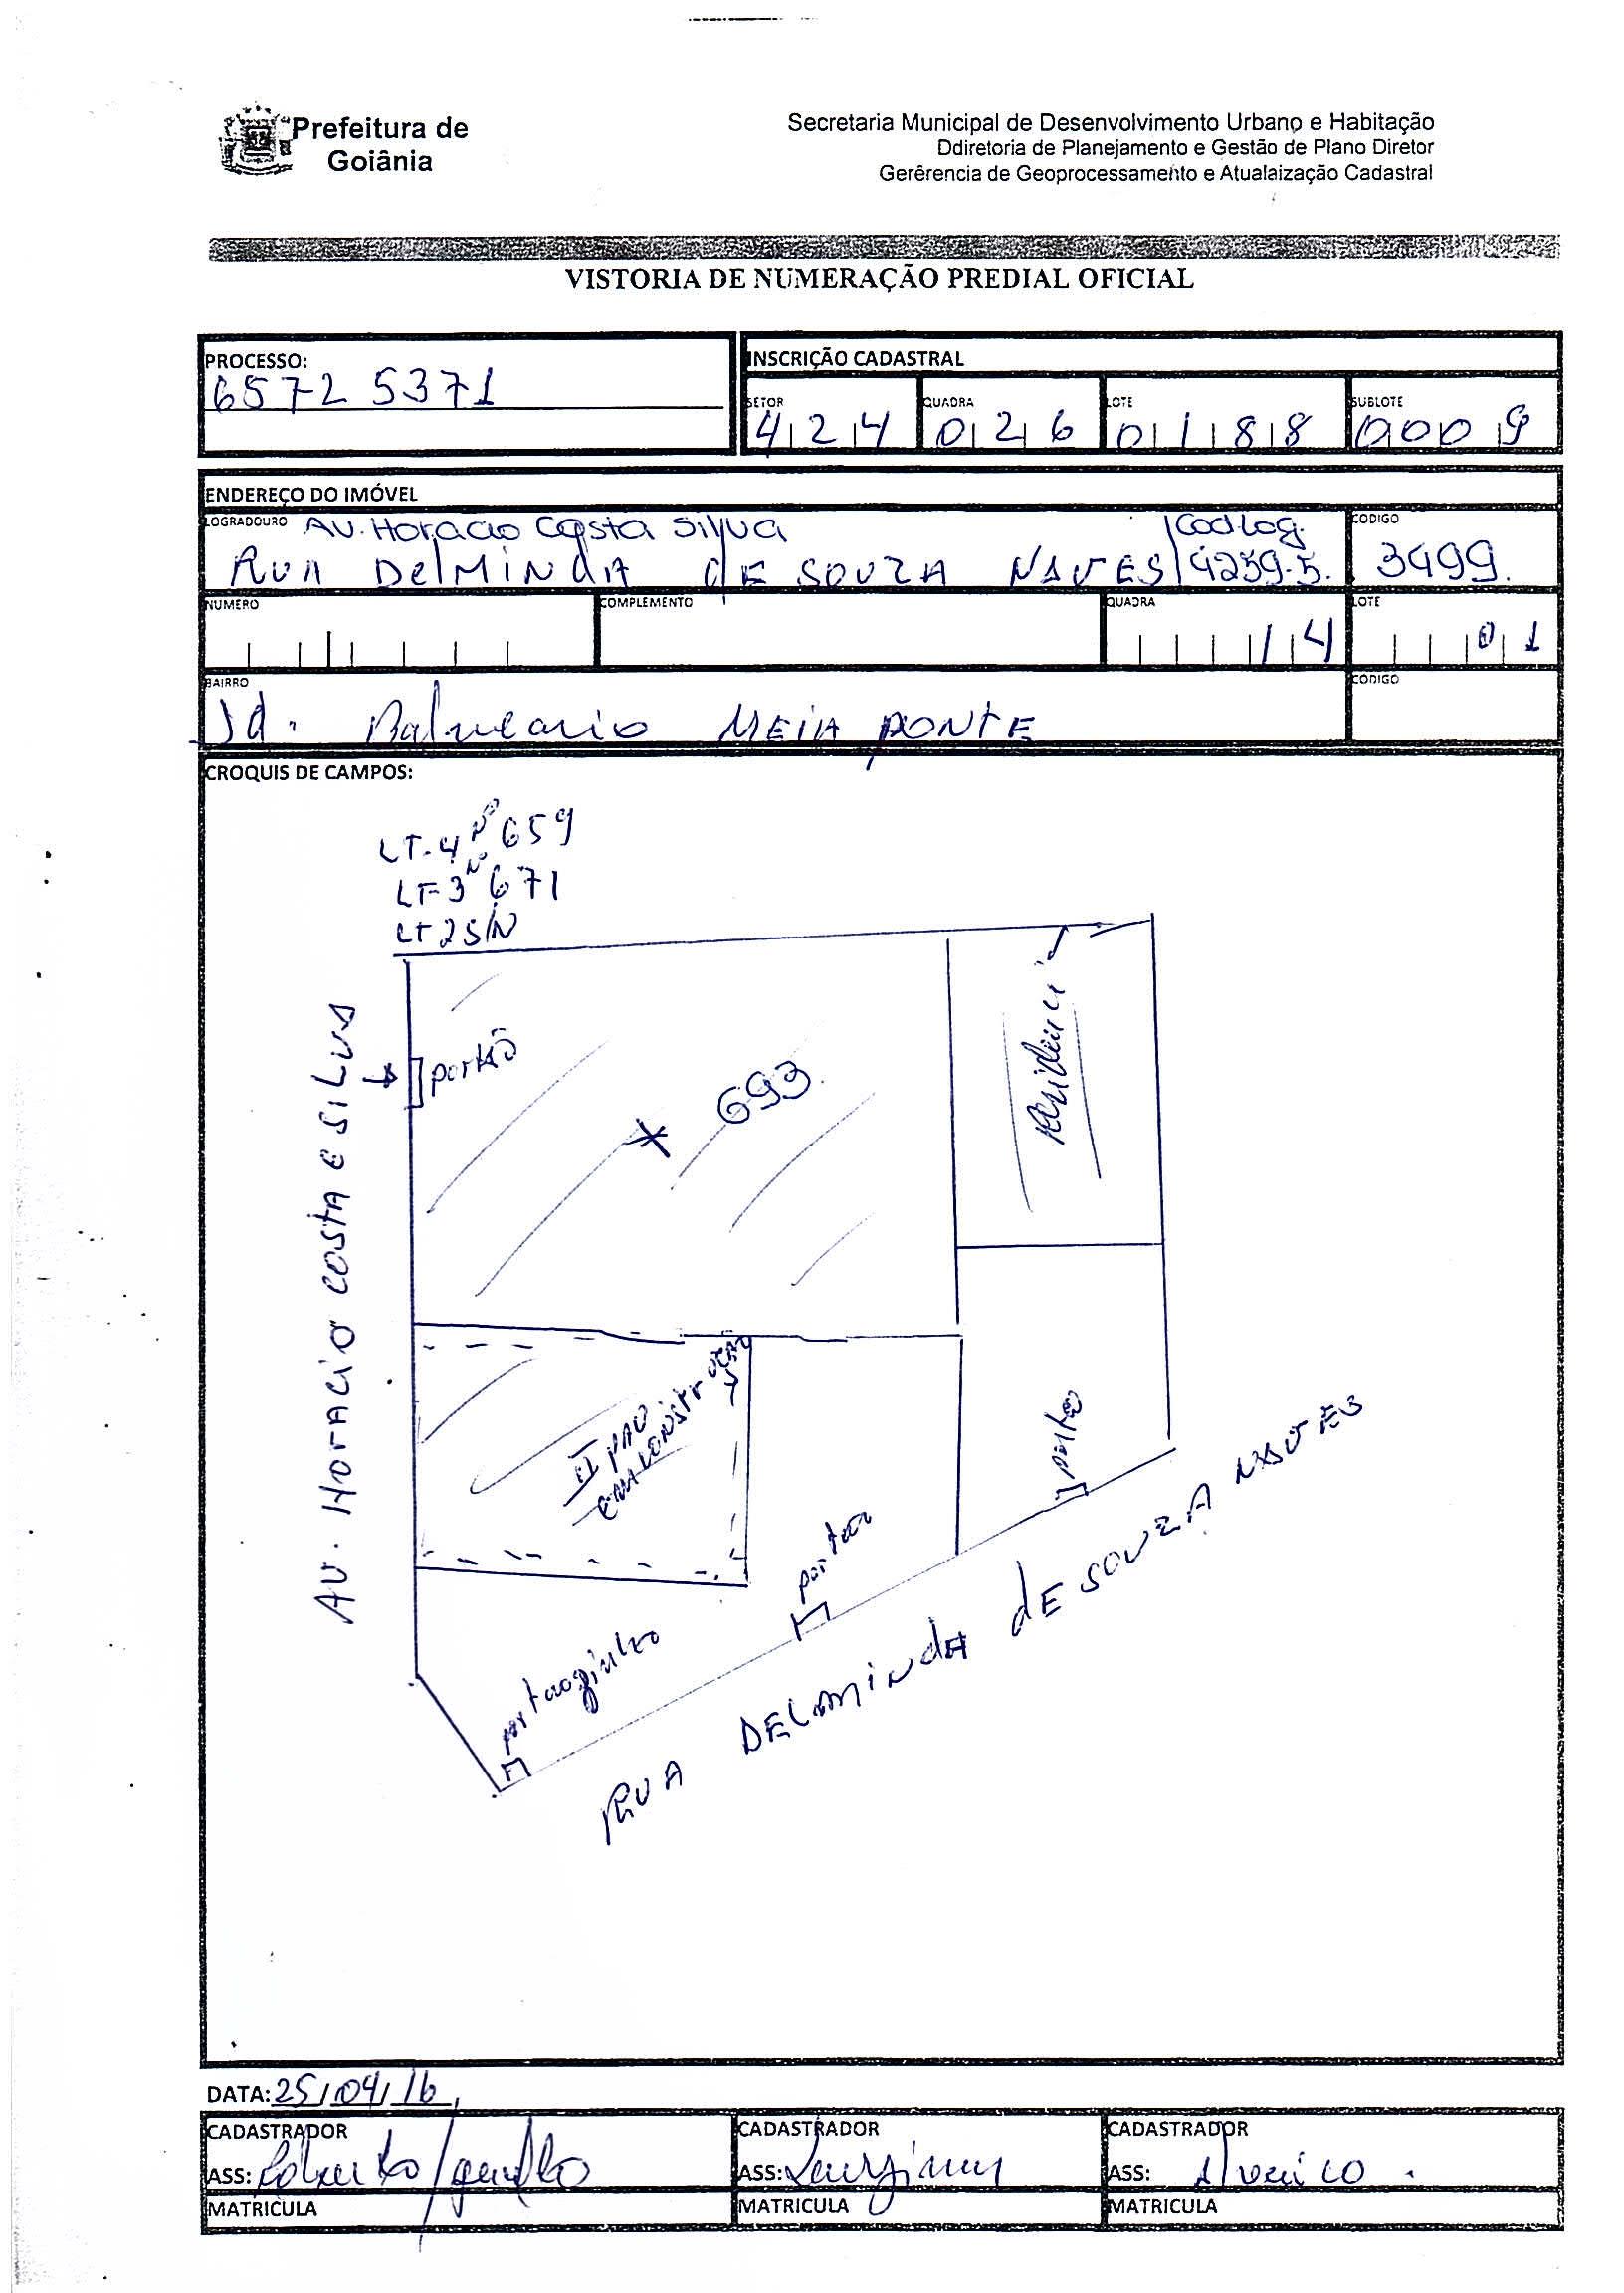 Prefeitura de
Goiânia
Secretaria Municipal de Desenvolvimento Urbano e Habitação
Ddiretoria de Planejamento e Gestão de Plano Diretor
Gerêrencia de Geoprocessamento e Atualaização Cadastral
VISTORIA DE NUMERAÇÃO PREDIAL OFICIAL
PROCESSO:
6572 5371
INSCRIÇÃO CADASTRAL
SETOR QUADRA LOTE SUBLOTE
424 026 0188 0009
ENDEREÇO DO IMÓVEL
LOGRADOURO AV. Horacio Costa Silva Codlog. CODIGO
RUA DelMINdA dE SOUZA NAVES 4259.5. 3499.
NUMERO COMPLEMENTO QUADRA LOTE
14 01
BAIRRO CODIGO
Jd. Balneario MEIA PONTE
CROQUIS DE CAMPOS:
LT-4 Nº 659
LT-3 Nº 671
LT 2 S/N
AV. HORACIO COSTA E SILVA
portão
693
II PAV
em construção
portão
portão
portaozinho
RUA DELMINdA dE SOUZA NAVES
DATA: 25/04/16
CADASTRADOR CADASTRADOR CADASTRADOR
ASS: Roberto ASS: ASS:
MATRICULA MATRICULA MATRICULA